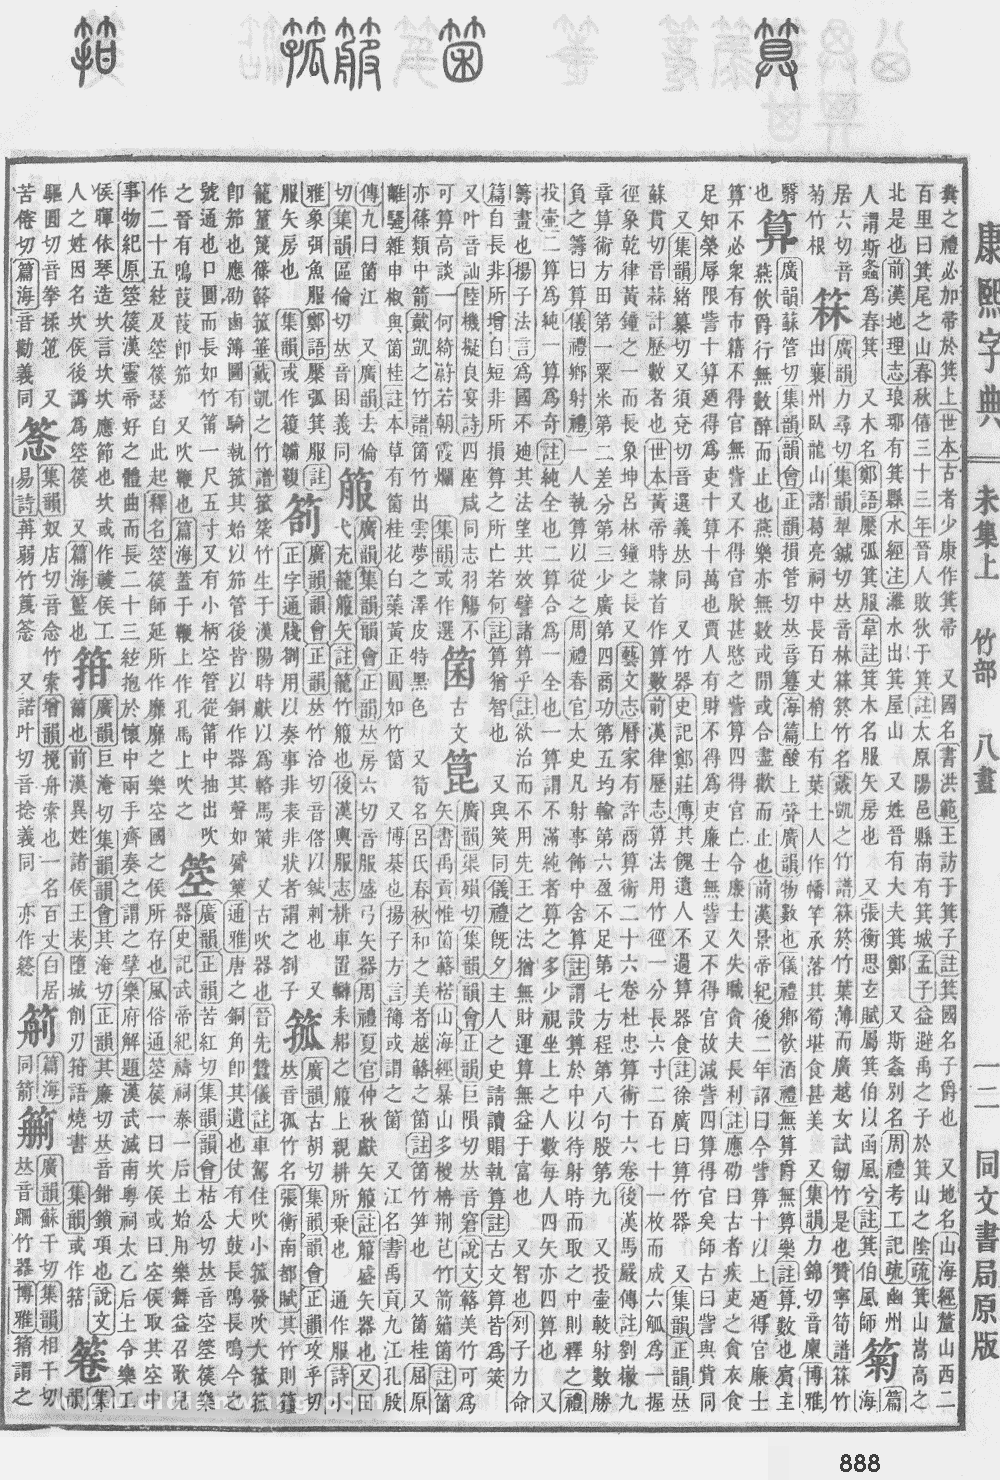 算 箘 箙 箛 箝
康熙字典 未集上 竹部 八畫 一二 同文書局原版
糞之禮必加帚於箕上世本古者少康作箕帚 又國名書洪範王訪于箕子註箕國名子爵也 又地名山海經釐山西二
百里曰箕尾之山春秋僖三十三年晉人敗狄于箕註太原陽邑縣南有箕城孟子益避禹之子於箕山之陰疏箕山嵩高之
北是也前漢地理志琅琊有箕縣水經注濰水出箕屋山 又姓晉有大夫箕鄭 又斯螽別名周禮考工記疏幽州
人謂斯螽爲舂箕 又木名鄭語檿弧箕服韋註箕木名服矢房也 又張衡思玄賦屬箕伯以函風兮註箕伯風師
菊 篇海
居六切音
菊竹根
箖 廣韻力尋切集韻犁鍼切𠀤音林箖箊竹名戴凱之竹譜箖箊竹葉薄而廣越女試劒竹是也贊寧筍譜箖竹
出襄州臥龍山諸葛亮祠中長百丈梢上有葉土人作幡竿承落其筍堪食甚美 又集韻力錦切音廩博雅
翳也
算 廣韻蘇管切集韻韻會正韻損管切𠀤音篹海篇酸上聲廣韻物數也儀禮鄉飲酒禮無算爵無算樂註算數也賓主
燕飲爵行無數醉而止也燕樂亦無數或閒或合盡歡而止也前漢景帝紀後二年詔曰今訾算十以上廼得官廉士
算不必衆有市籍不得官無訾又不得官朕甚愍之訾算四得官亡令廉士久失職貪夫長利註應劭曰古者疾吏之貪衣食
足知榮辱限訾十算廼得爲吏十算十萬也賈人有財不得爲吏廉士無訾又不得官故減訾四算得官矣師古曰訾與貲同
又集韻緒纂切又須兗切音選義𠀤同 又竹器史記鄭莊傳其餽遺人不過算器食註徐廣曰算竹器 又集韻正韻𠀤
蘇貫切音蒜計歷數者也世本黃帝時隸首作算數前漢律歷志算法用竹徑一分長六寸二百七十一枚而成六觚爲一握
徑象乾律黃鐘之一而長象坤呂林鐘之長又藝文志曆家有許商算術二十六卷杜忠算術十六卷後漢馬嚴傳註劉徽九
章算術方田第一粟米第二差分第三少廣第四商功第五均輸第六盈不足第七方程第八句股第九 又投壷較射數勝
負之籌曰算儀禮鄉射禮一人執算以從之周禮春官大史凡射事飾中舍算註謂設算於中以待射時而取之中則釋之禮
投壷二算爲純一算爲奇註純全也二算合爲一全也一算謂不滿純者算之多少視坐上之人數每人四矢亦四算也 又
籌畫也揚子法言爲國不廸其法望其效譬諸算乎註欲治而不用先王之法猶無財運算無益于富也 又智也列子力命
篇自長非所增自短非所損算之所亡若何註算猶智也 又與筴同儀禮旣夕主人之史請讀賵執算註古文算皆爲筴
又叶音訕陸機擬良宴詩四座咸同志羽觴不可算高談一何綺蔚若朝霞爛 集韻或作選
箘 古文
箟 廣韻渠殞切集韻韻會正韻巨隕切𠀤音窘說文箘簬美竹可爲
矢書禹貢惟箘簵楛山海經暴山多椶枏荆芑竹箭䉋箘註箘
亦篠類中箭戴凱之竹譜箘竹出雲夢之澤皮特黑色 又筍名呂氏春秋和之美者越簵之箘註箘竹笋也 又箘桂屈原
離騷雜申椒與箘桂註本草有箘桂花白蘂黃正圓如竹箘 又博棊也揚子方言簙或謂之箘 又江名書禹貢九江孔殷
傳九曰箘江 又廣韻去倫切集韻區倫切𠀤音囷義同
箙 廣韻集韻韻會正韻𠀤房六切音服盛弓矢器周禮夏官仲秋獻矢箙註箙盛矢器也又田
弋充籠箙矢註籠竹箙也後漢輿服志耕車置轓耒耜之箙上親耕所乘也 通作服詩小
雅象弭魚服鄭語檿弧箕服註服矢房也 集韻或作𥱀鞴鞁
箚 廣韻韻會正韻𠀤竹洽切音偣以鍼刺也 又
正字通牋劄用以奏事非表非狀者謂之劄子
箛 廣韻古胡切集韻韻會正韻攻乎切
𠀤音孤竹名張衡南都賦其竹則籦
籠箽篾篠簳箛箠戴凱之竹譜箛䇲竹生于漢陽時獻以爲輅馬策 又古吹器也晉先蠶儀註車駕住吹小箛發吹大箛箛
卽笳也應劭鹵簿圖有騎執箛其始以笳管後皆以銅作器其聲如觱篥通雅唐之銅角卽其遺也仗有大鼓長鳴長鳴今之
號通也口圓而長如竹筩一尺五寸又有小柄空管從筩中抽出吹
之晉有鳴葭葭卽笳 又吹鞭也篇海蓋于鞭上作孔馬上吹之
箜 廣韻正韻苦紅切集韻韻會枯公切𠀤音空箜篌樂
器史記武帝紀禱祠泰一后土始用樂舞益召歌兒
作二十五絃及箜篌瑟自此起釋名箜篌師延所作靡靡之樂空國之侯所存也風俗通箜篌一曰坎侯或曰空侯取其空中
事物紀原箜篌漢靈帝好之體曲而長二十三絃抱於懷中兩手齊奏之謂之擘樂府解題漢武滅南粵祠太乙后土令樂工
侯暉依琴造坎言坎坎應節也坎或作贛侯工
人之姓因名坎侯後譌爲箜篌 又篇海籃也
箝 廣韻巨淹切集韻韻會其淹切正韻其廉切𠀤音鉗鎖項也說文
籋也前漢異姓諸侯王表墮城創刃箝語燒書 集韻或作䇞
箞 集韻
驅圓切音拳揉笓 又
苦倦切篇海音勸義同
䇯 集韻奴店切音念竹索增韻䌫舟索也一名百丈白居
易詩苒蒻竹篾䇯 又諾叶切音捻義同 亦作䋻
篇海
同箭
廣韻蘇干切集韻相干切
𠀤音跚竹器博雅䈠謂之
888